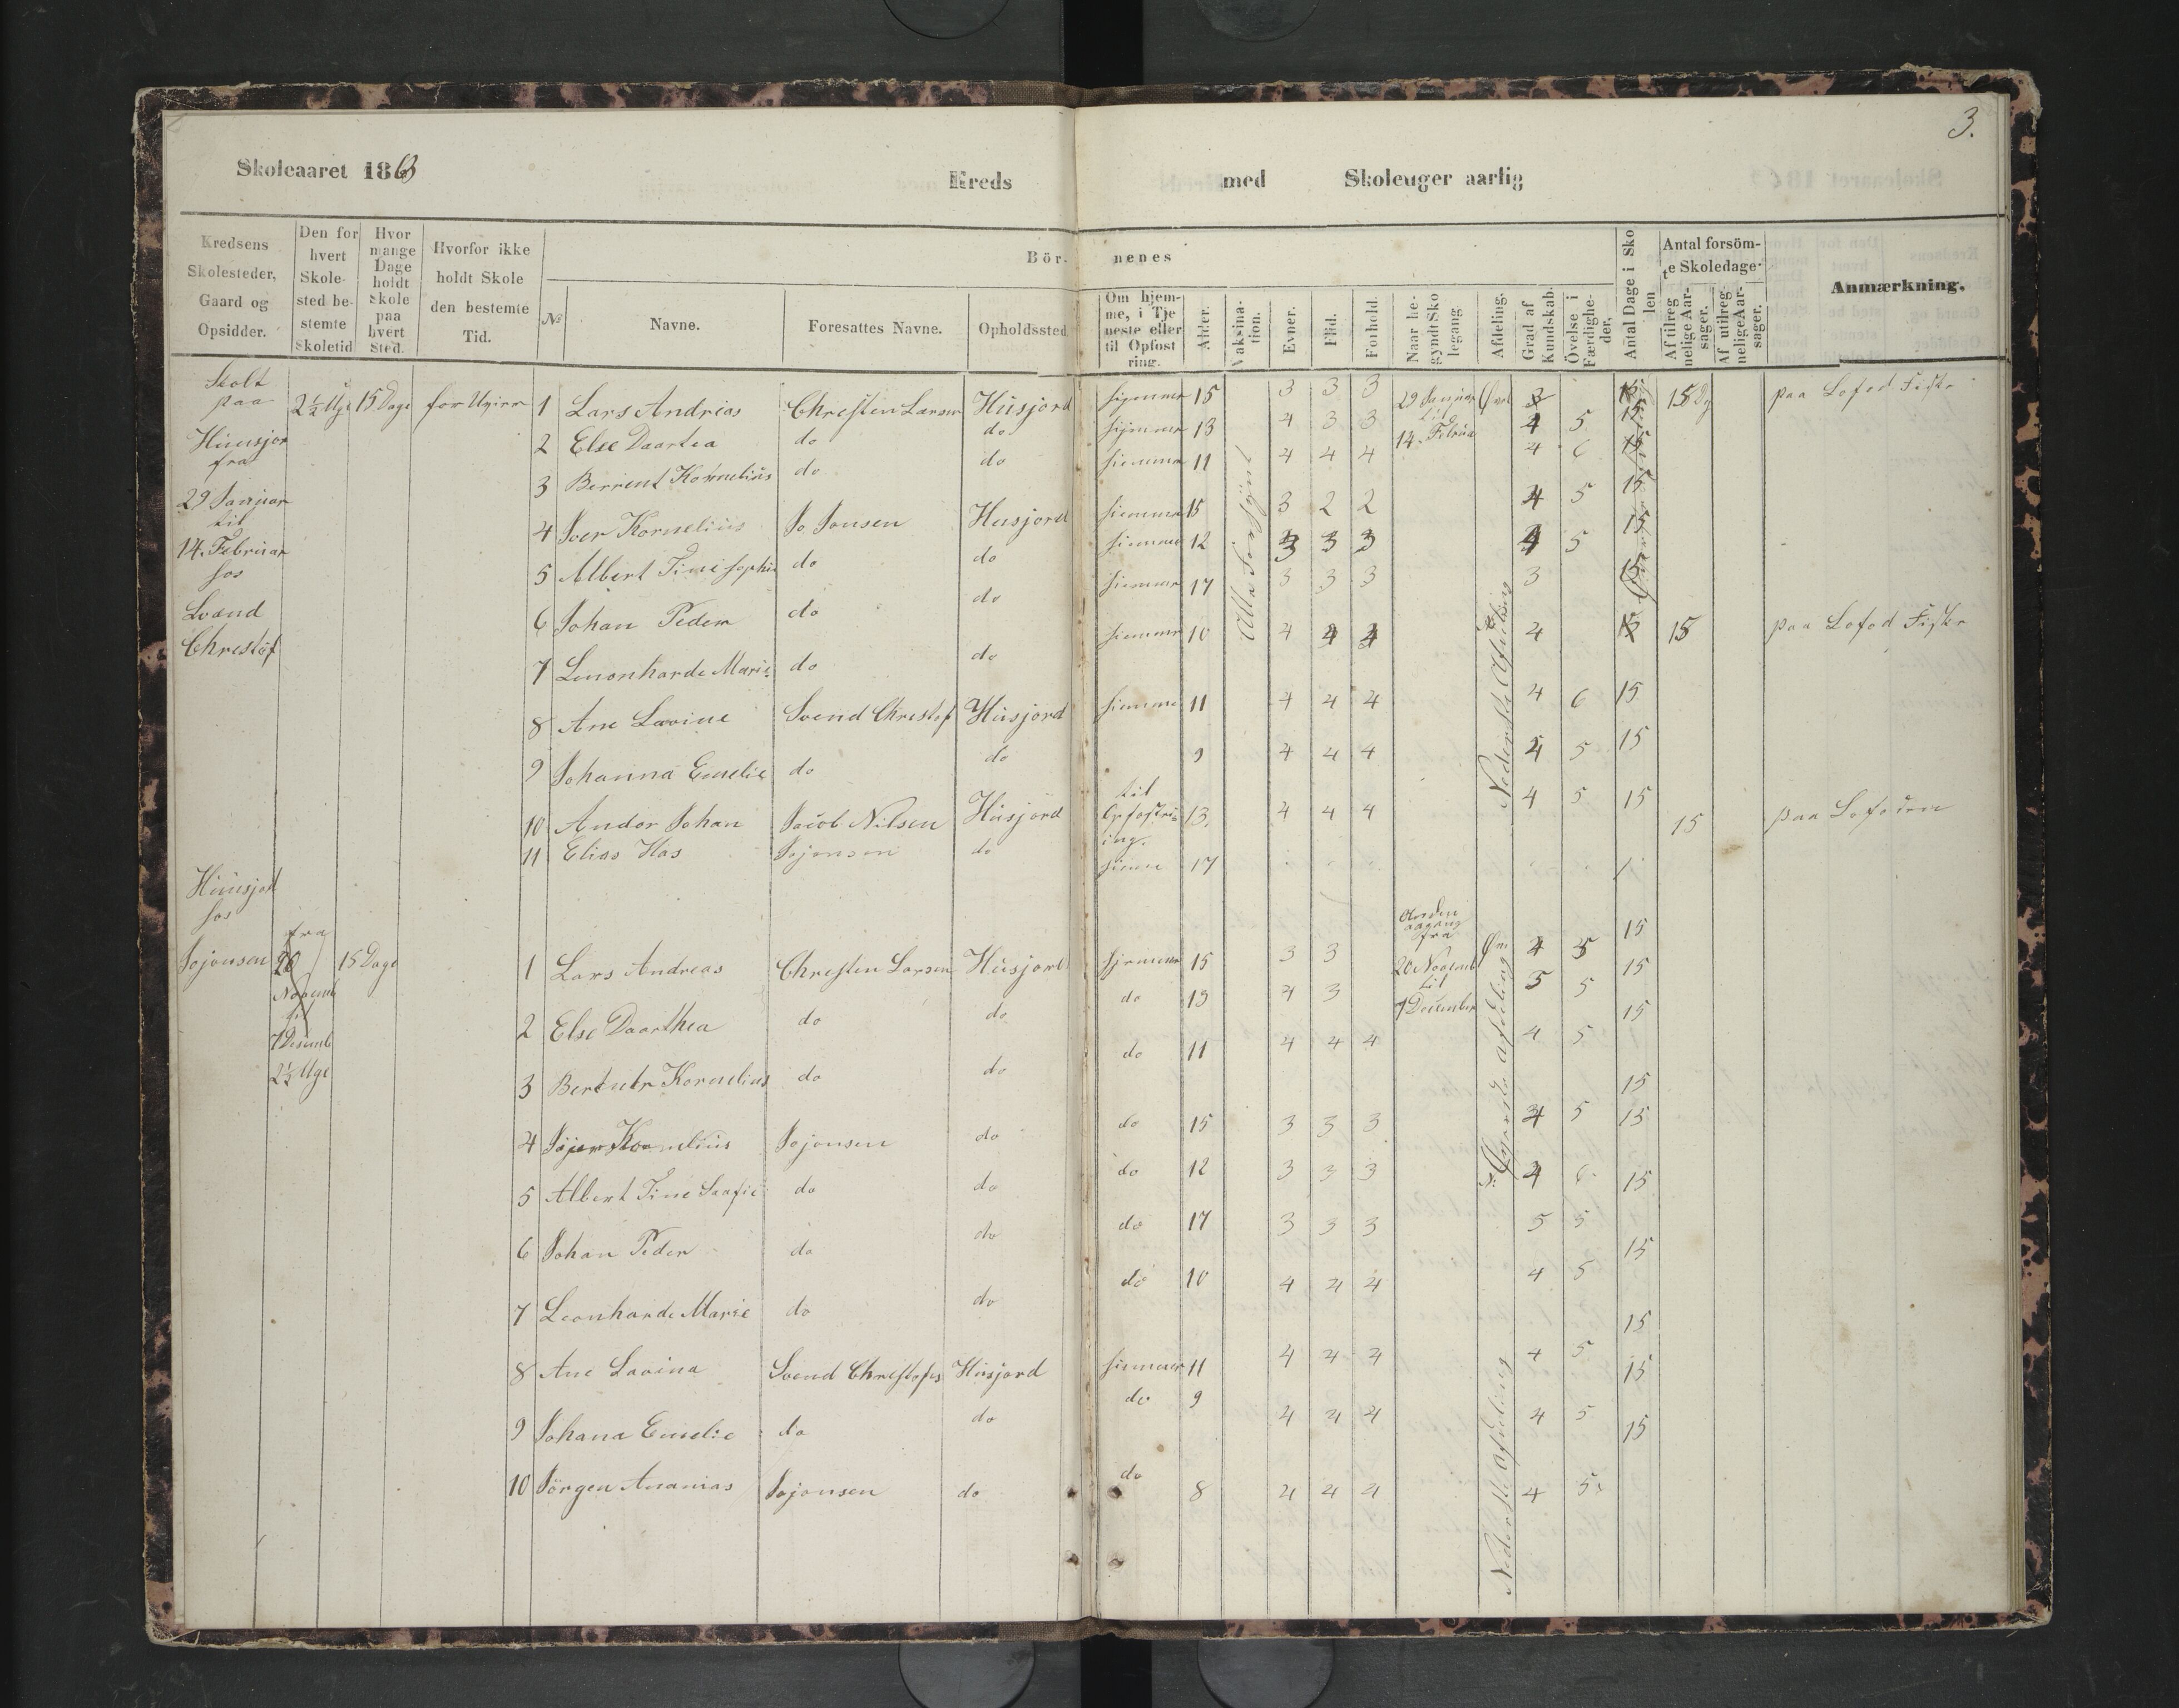 3.
Skoleaaret 1863 Kreds med Skoleuger aarlig
Kredsens Skolesteder, Gaard og Opsidder.
Den for hvert Skolested bestemte Skoletid
Hvor mange Dage holdt Skole paa hvert Sted.
Hvorfor ikke holdt Skole den bestemte Tid.
Börnenes
No
Navne.
Foresattes Navne.
Opholdssted
Om hjemme, i Tjeneste eller til Opfostring.
Alder.
Vaksination.
Evner.
Flid.
Forhold.
Naar begyndt Skolegang
Afdeling.
Grad af Kundskab.
Övelse i Færdigheder,
Antal Dage i Skolen
Antal forsömte Skoledage.
Af tilregnelige Aarsager.
Af utilregnelige Aarsager.
Anmærkning.
Skolt
paa
Huusjor
fra
29 Januar
til
14. Februar
hos
Svend
Christof
2½ Uge 15 Dage
1 Lars Andrias Christen Larsen Husjord hjemmer 15 3 3 3 29 Januar 3 15 paa Lofod Fiske
til
14. Februa
2 Else Daartea do do hjemmer 13 4 3 3 4 5 15
3 Berrent Kornelius do do hiemmer 11 4 4 4 4 6 15
4 Iver Kornelius Jo Jonsen Husjord hiemmer 15 3 2 2 4 5 15
5 Albert Tine Sophie do do hiemmer 12 3 3 3 4 5 15
6 Johan Peder do do hiemmer 17 3 3 3 3
7 Lenonharde Marie do do hiemmer 10 4 4 4 4 15 paa Lofod Fiske
8 Ane Lavine Svend Christof Husjord hiemme 11 4 4 4 4 6 15
9 Johanna Emelie do do 9 4 4 4 4 5 15
10 Andor Johan Jacob Nilsen Husjord til Opfostring. 13. 4 4 4 4 5 15
11 Elias Has Jojonsen do hieme 17 15 paa Lofoden
Alle
Nederste Afdeling
Huusjord
hos
Jojonsen
fra
20
Novemb
til
7 Desemb
2½ Uge
15 Dage
Anden
fra
20 Novemb
til
7 December
1 Lars Andreas Christen Larsen Husjord hjemmer 15 3 3 4 5 15
2 Else Daarthea do do do 13 4 3 5 5 15
3 Kornelius do do do 11 4 4 4 4 5 15
4 Jojonsen do do 15 3 3 3 4 5 15
5 Albert Tine Saafie do do do 12 3 3 3 4 6 15
6 Johan Peder do do do 17 3 3 3 5 5 15
7 Leonharde Marie do do do 10 4 4 4 4 5 15
8 Ane Lavina Svend Christofes Husjord hiemmer 11 4 4 4 4 5 15
9 Johana Emelie do do do 9 4 4 4 4 5 15
10 Jörgen Ananias Jojonsen do do 8 4 4 4 4 5 15
Øverste afdeling
Nederste afdeling